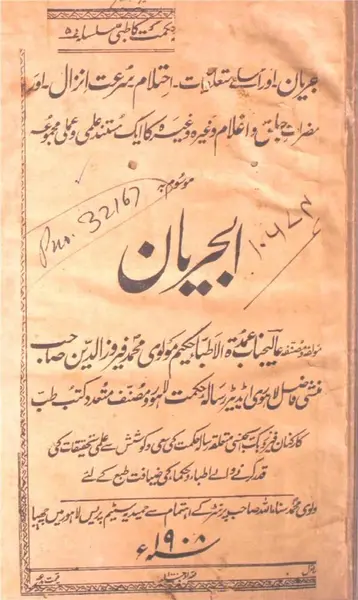 حکمت کا طبی سلسلہ
جریان - اور اسکے متعلقات - احتلام - سرعت انزال - اور
مضرات جلق و اغلام وغیرہ وغیرہ کا ایک مستند علمی و عملی مجموعہ
موسوم بہ
Pno. 32167
الجریان
مؤلفہ و مصنفہ عالیجناب عمدۃ الاطباء حکیم مولوی محمد فیروز الدین صاحب
منشی فاضل لاہوری ایڈیٹر رسالہ حکمت لاہور و مصنف متعدد کتب طب
کارکنان متعلقہ رسالہ حکمت کی سعی و کوشش سے علمی تحقیقات کی
قدر کرنے والے اطباء و حکماء کی ضیافت طبع کے لئے
مولوی محمد ثناء اللہ صاحب پرنٹر کے اہتمام سے حمیدیہ سٹیم پریس لاہور میں چھپا
۱۹۰۸ء